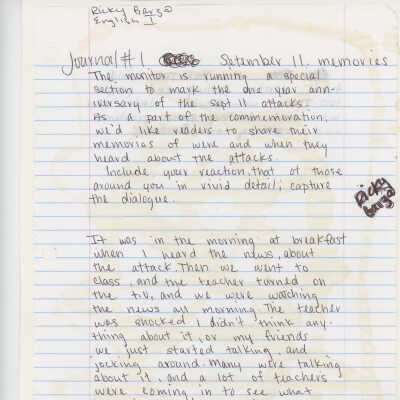 Ricky Barza
English 1
Journal #1 Setember 11. memories
The monitor is running a special
section to mark the one year ann-
iversary of the sept 11 attacks.
As a part of the commemoration,
we'd like readers to share their
memories of were and when they
heard about the attacks.
Include your reaction, that of those
around you in vivid detail; capture
the dialogue.
Ricky
Barza
It was in the morning at breakfast
when I heard the news, about
the attack. Then we went to
class, and the teacher turned on
the t.v, and we were watching
the news all morning. The teacher
was shocked. I didn't think any-
thing about it, or my friends
we just started talking, and
jocking around. Many were talking
about it, and a lot of teachers
were coming in to see what